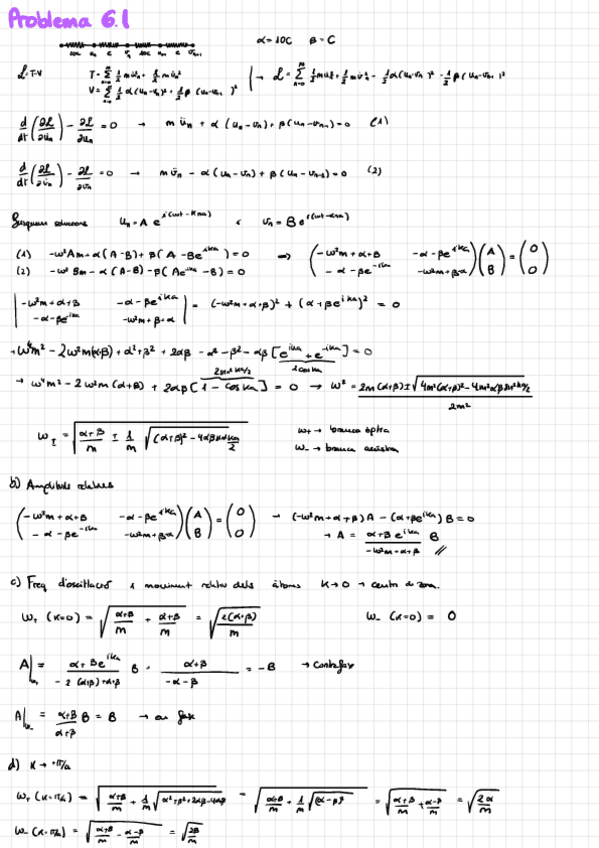 Problema 6.1
α = 10C β = C
10C u_n C v_n 10C u_{n+1} C v_{n+1}
L = T-V T = Σ ½ m u̇_n² + ½ m v̇_n² → L = Σ ½ m u̇_n² + ½ m v̇_n² - ½ α (u_n - v_n)² - ½ β (u_n - v_{n-1})²
V = Σ ½ α (u_n - v_n)² + ½ β (u_n - v_{n-1})²
d/dt (∂L/∂u̇_n) - ∂L/∂u_n = 0 → m ü_n + α (u_n - v_n) + β (u_n - v_{n-1}) = 0 (1)
d/dt (∂L/∂v̇_n) - ∂L/∂v_n = 0 → m v̈_n - α (u_n - v_n) + β (u_n - v_{n-1}) = 0 (2)
Busquem solucions u_n = A e^{i(ωt - Kna)} i v_n = B e^{i(ωt - Kna)}
(1) -ω²Am + α(A-B) + β(A - Be^{ika}) = 0 => (-ω²m+α+β -α-βe^{ika}) (A) = (0)
(2) -ω²Bm - α(A-B) - β(Ae^{-ika} - B) = 0 (-α-βe^{-ika} -ω²m+β+α) (B) (0)
|-ω²m+α+β -α-βe^{ika}| = (-ω²m+α+β)² + (α+βe^{ika})² = 0
|-α-βe^{-ika} -ω²m+β+α|
+ω⁴m² - 2ω²m(α+β) + α²+β² + 2αβ - α² - β² - αβ [e^{ika} + e^{-ika}] = 0
2sin²ka/2 2coska
→ ω⁴m² - 2ω²m(α+β) + 2αβ[1 - coska] = 0 → ω² = (2m(α+β) ± √(4m²(α+β)² - 4m²αβ4sin²ka/2)) / 2m²
ω_± = √((α+β)/m ± 1/m √((α+β)² - 4αβsin²ka/2)) ω+ → branca òptica
ω- → branca acústica
b) Amplituds relatives
(-ω²m+α+β -α-βe^{ika}) (A) = (0) → (-ω²m+α+β)A - (α+βe^{ika})B = 0
(-α-βe^{-ika} -ω²m+β+α) (B) (0) → A = (α+βe^{ika}) / (-ω²m+α+β) B //
c) Freq d'oscil·lació i moviment relatiu dels àtoms K→0 → centre de zona.
ω+ (K=0) = √((α+β)/m + (α+β)/m) = √(2(α+β)/m) ω- (K=0) = 0
A|ω+ = (α+βe^{ika}) / (-2(α+β)+α+β) B = (α+β) / (-α-β) = -B → Contrafase
A|ω- = (α+β)/(α+β) B = B → en fase
d) K → π/a
ω+ (K=π/a) = √((α+β)/m + 1/m √(α²+β²+2αβ-4αβ)) = √((α+β)/m + 1/m √(α-β)²) = √((α+β)/m + (α-β)/m) = √(2α/m)
ω- (K=π/a) = √((α+β)/m - (α-β)/m) = √(2β/m)